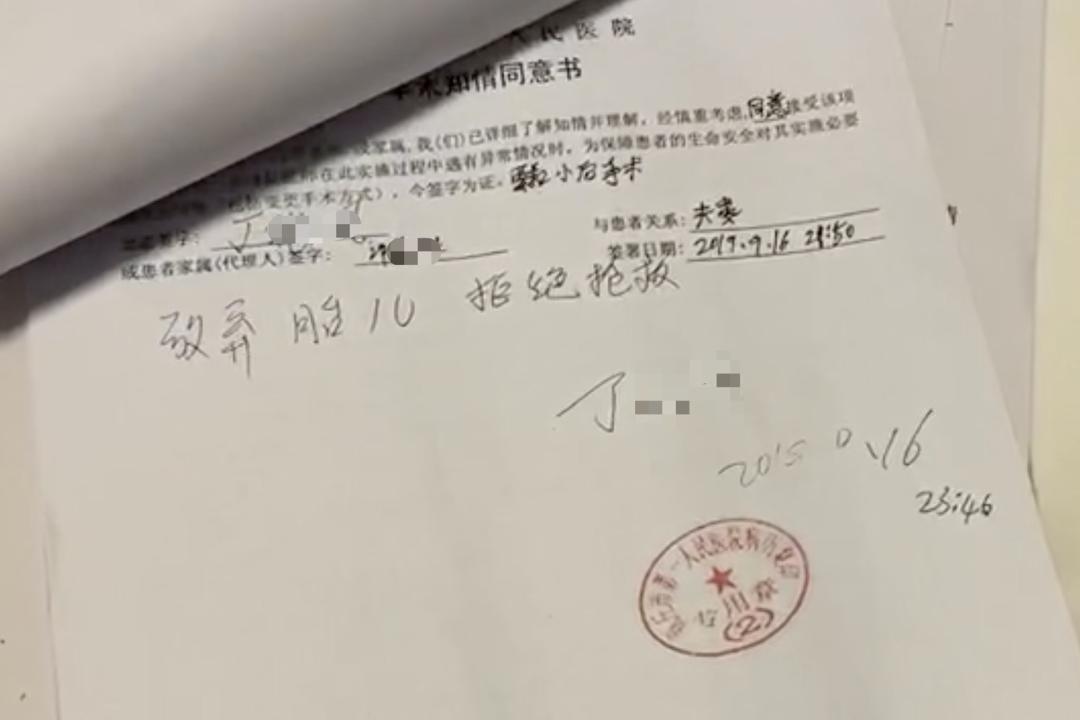 人民医院
手术知情同意书
家属,我(们)已详细了解知情并理解,经慎重考虑,同意接受该项
在此实施过程中遇有异常情况时,为保障患者的生命安全对其实施必要
变更手术方式),今签字为证。要求小百手术
签字: 丁 与患者关系: 夫妻
或患者家属(代理人)签字: 签署日期: 2019.9.16
放弃胎儿 拒绝抢救
丁
16
23:46
市第一人民医院病历复印
专用章
(2)